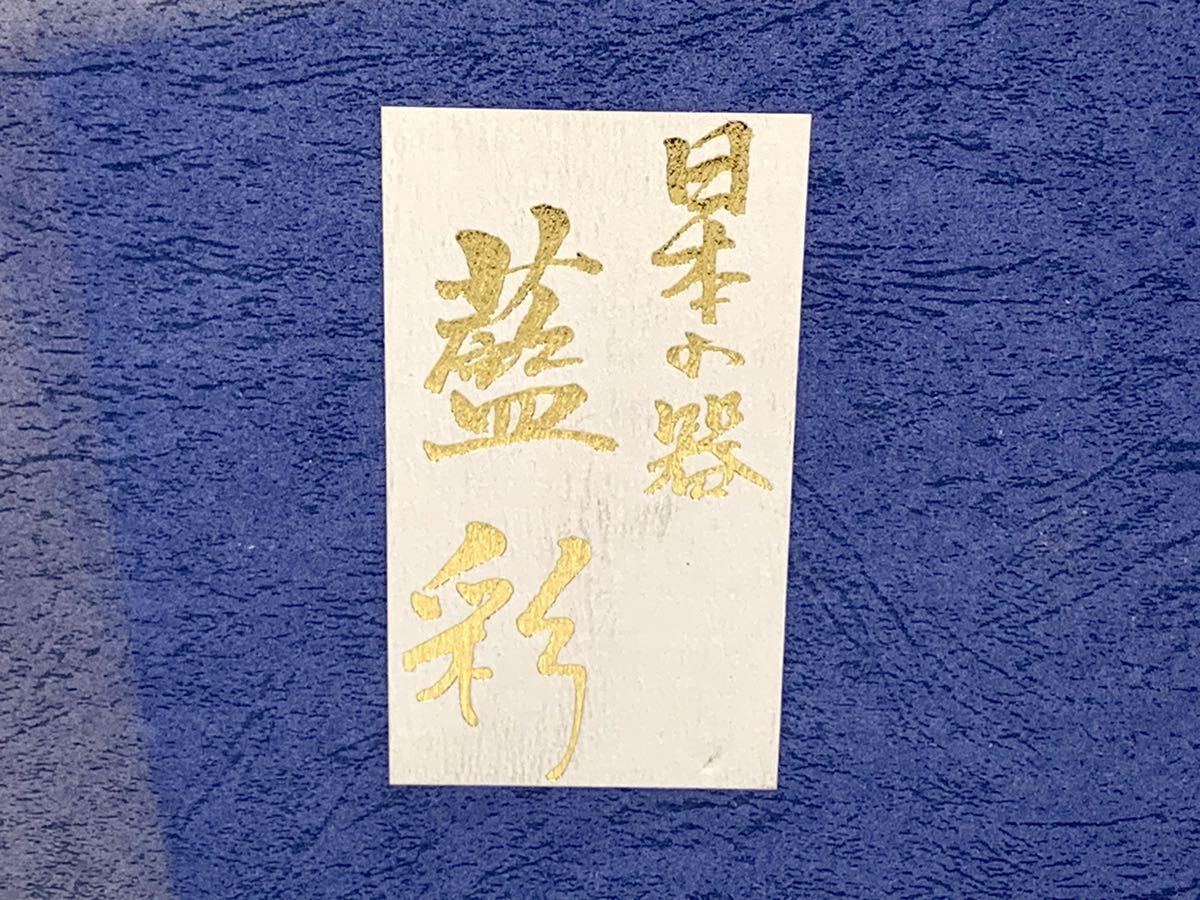 日本の器
藍彩